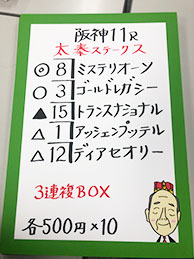 阪神11R
太秦ステークス
◎ 8 ミステリオーン
○ 3 ゴールドレガシー
▲ 15 トランスナショナル
△ 1 アッシェンプッテル
△ 12 ディアセオリー
3連複BOX
各500円×10